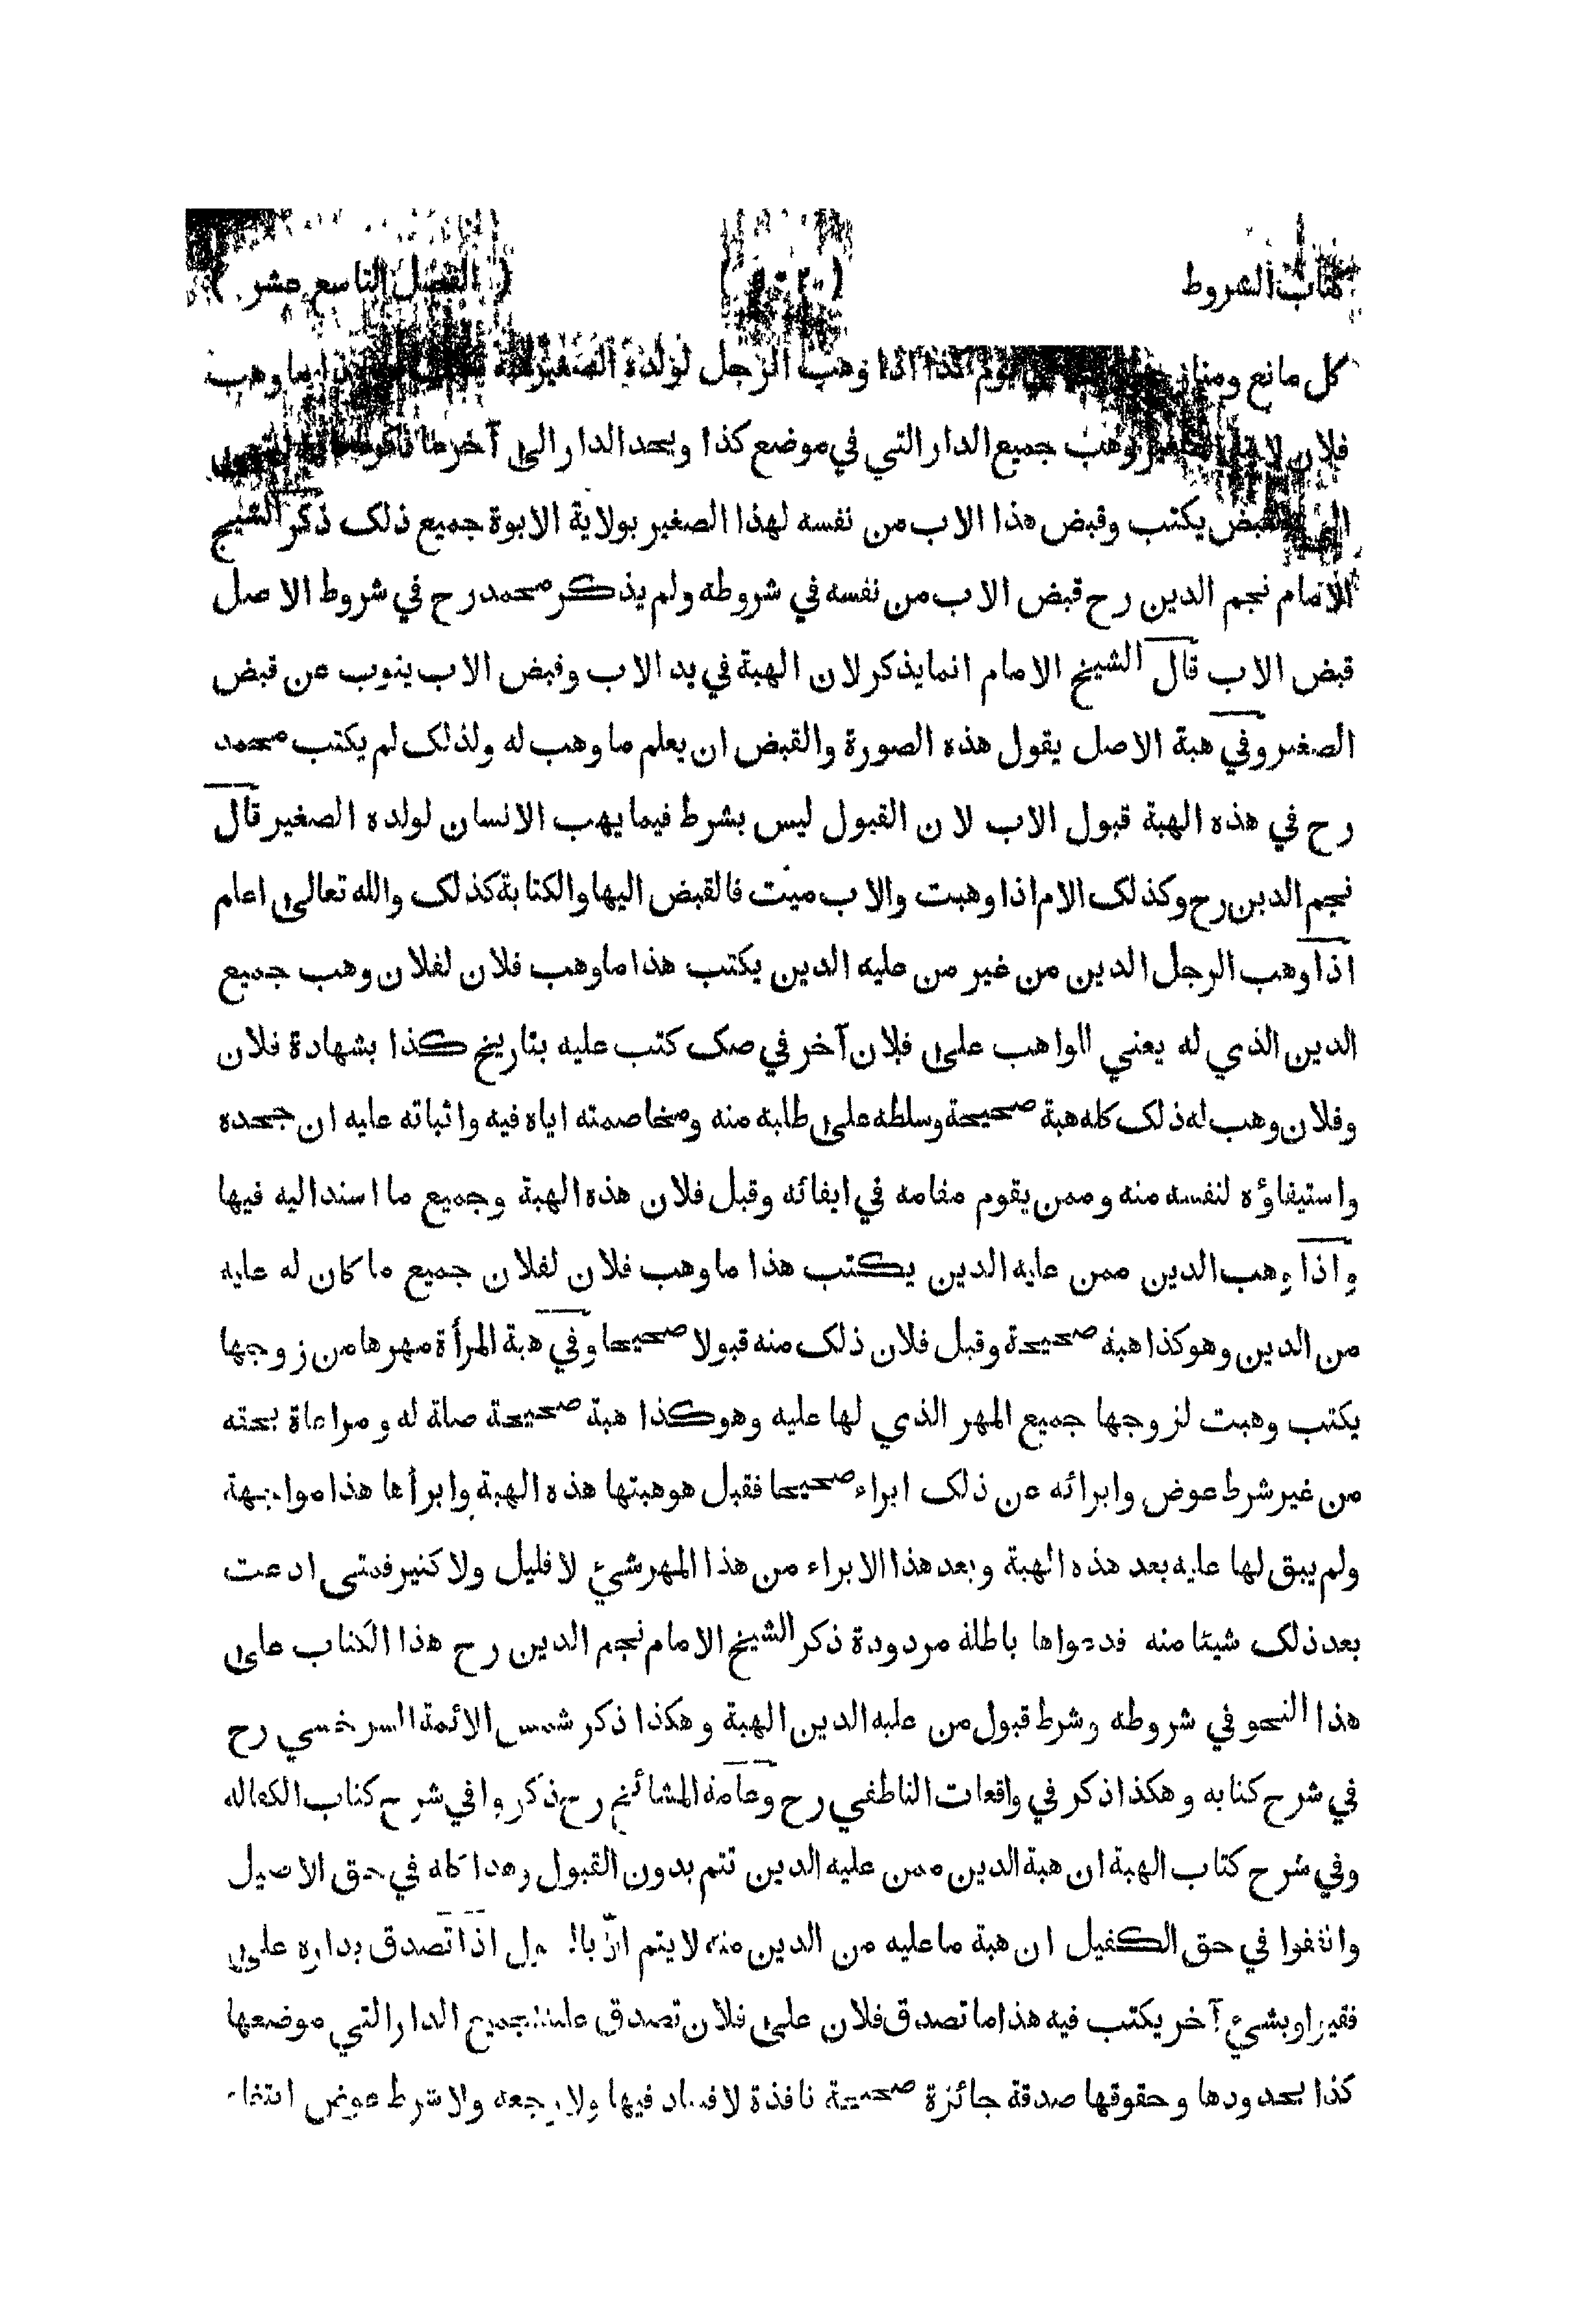 كتاب الشروط ( الفصل التاسع عشر )
كل مانع ومناز يوم كذا اذا وهب الرجل لولده الصغير ما وهب
فلان وهب جميع الدار التي في موضع كذا ويحد الدار الى آخر ما ذكرنا
القبض يكتب وقبض هذا الاب من نفسه لهذا الصغير بولاية الابوة جميع ذلك ذكر الشيخ
الامام نجم الدين رح قبض الاب من نفسه في شروطه ولم يذكر محمد رح في شروط الاصل
قبض الاب قال الشيخ الامام انما يذكر لان الهبة في يد الاب وقبض الاب ينوب عن قبض
الصغير وفي هبة الاصل يقول هذه الصورة والقبض ان يعلم ما وهب له ولذلك لم يكتب محمد
رح في هذه الهبة قبول الاب لان القبول ليس بشرط فيما يهب الانسان لولده الصغير قال
نجم الدين رح وكذلك الام اذا وهبت والاب ميت فالقبض اليها والكتابة كذلك والله تعالى اعلم
اذا وهب الرجل الدين من غير من عليه الدين يكتب هذا ما وهب فلان لفلان وهب جميع
الدين الذي له يعني الواهب على فلان آخر في صك كتب عليه بتاريخ كذا بشهادة فلان
وفلان وهب له ذلك كله هبة صحيحة وسلطه على طلبه منه ومخاصمته اياه فيه واثباته عليه ان جحده
واستيفاؤه لنفسه منه وممن يقوم مقامه في ايفائه وقبل فلان هذه الهبة وجميع ما اسند اليه فيها
واذا وهب الدين ممن عليه الدين يكتب هذا ما وهب فلان لفلان جميع ما كان له عليه
من الدين وهو كذا هبة صحيحة وقبل فلان ذلك منه قبولا صحيحا وفي هبة المرأة مهرها من زوجها
يكتب وهبت لزوجها جميع المهر الذي لها عليه وهو كذا هبة صحيحة صلة له ومراعاة بحته
من غير شرط عوض وابرائه عن ذلك ابراء صحيحا فقبل هو هبتها هذه الهبة وابرأها هذا مواجهة
ولم يبق لها عليه بعد هذه الهبة وبعد هذا الابراء من هذا المهر شيء لا قليل ولا كثير فمتى ادعت
بعد ذلك شيئا منه فدعواها باطلة مردودة ذكر الشيخ الامام نجم الدين رح هذا الكتاب على
هذا النحو في شروطه وشرط قبول من عليه الدين الهبة وهكذا ذكر شمس الائمة السرخسي رح
في شرح كتابه وهكذا ذكر في واقعات الناطفي رح وعامة المشائخ رح ذكروا في شرح كتاب الكفالة
وفي شرح كتاب الهبة ان هبة الدين ممن عليه الدين تتم بدون القبول وهذا كله في حق الاصيل
واتفقوا في حق الكفيل ان هبة ما عليه من الدين منه لا يتم الا اذا تصدق بداره على
فقير او بشيء آخر يكتب فيه هذا ما تصدق فلان على فلان تصدق عليه بجميع الدار التي موضعها
كذا بحدودها وحقوقها صدقة جائزة صحيحة نافذة لا فساد فيها ولا رجعة ولا شرط عوض ابتغاء